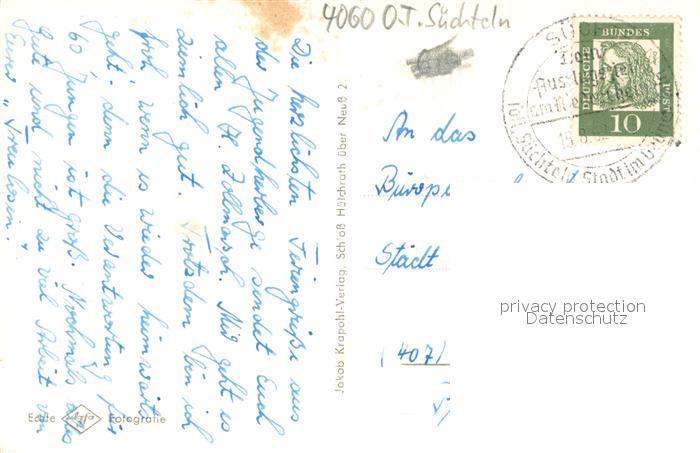 4060 O.T. Süchteln
Die herzlichsten Feriengrüße aus
der Jugendherberge sendet Euch
allen H. Zollmarsch. Mir geht es
ziemlich gut. Trotzdem bin ich
froh wenn es wieder heimwärts
geht, denn die Verantwortung für
60 Jungen ist groß. Nochmals alles
Gute und nicht zu viel Arbeit von
Eurer "Treulosen".
Jakob Krapohl-Verlag, Schloß Hülchrath über Neuß 2
An das
Bürope
Städt
(407)
DEUTSCHE BUNDESPOST
10
Süchteln Stadt im
privacy protection
Datenschutz
Echte Agfa Fotografie